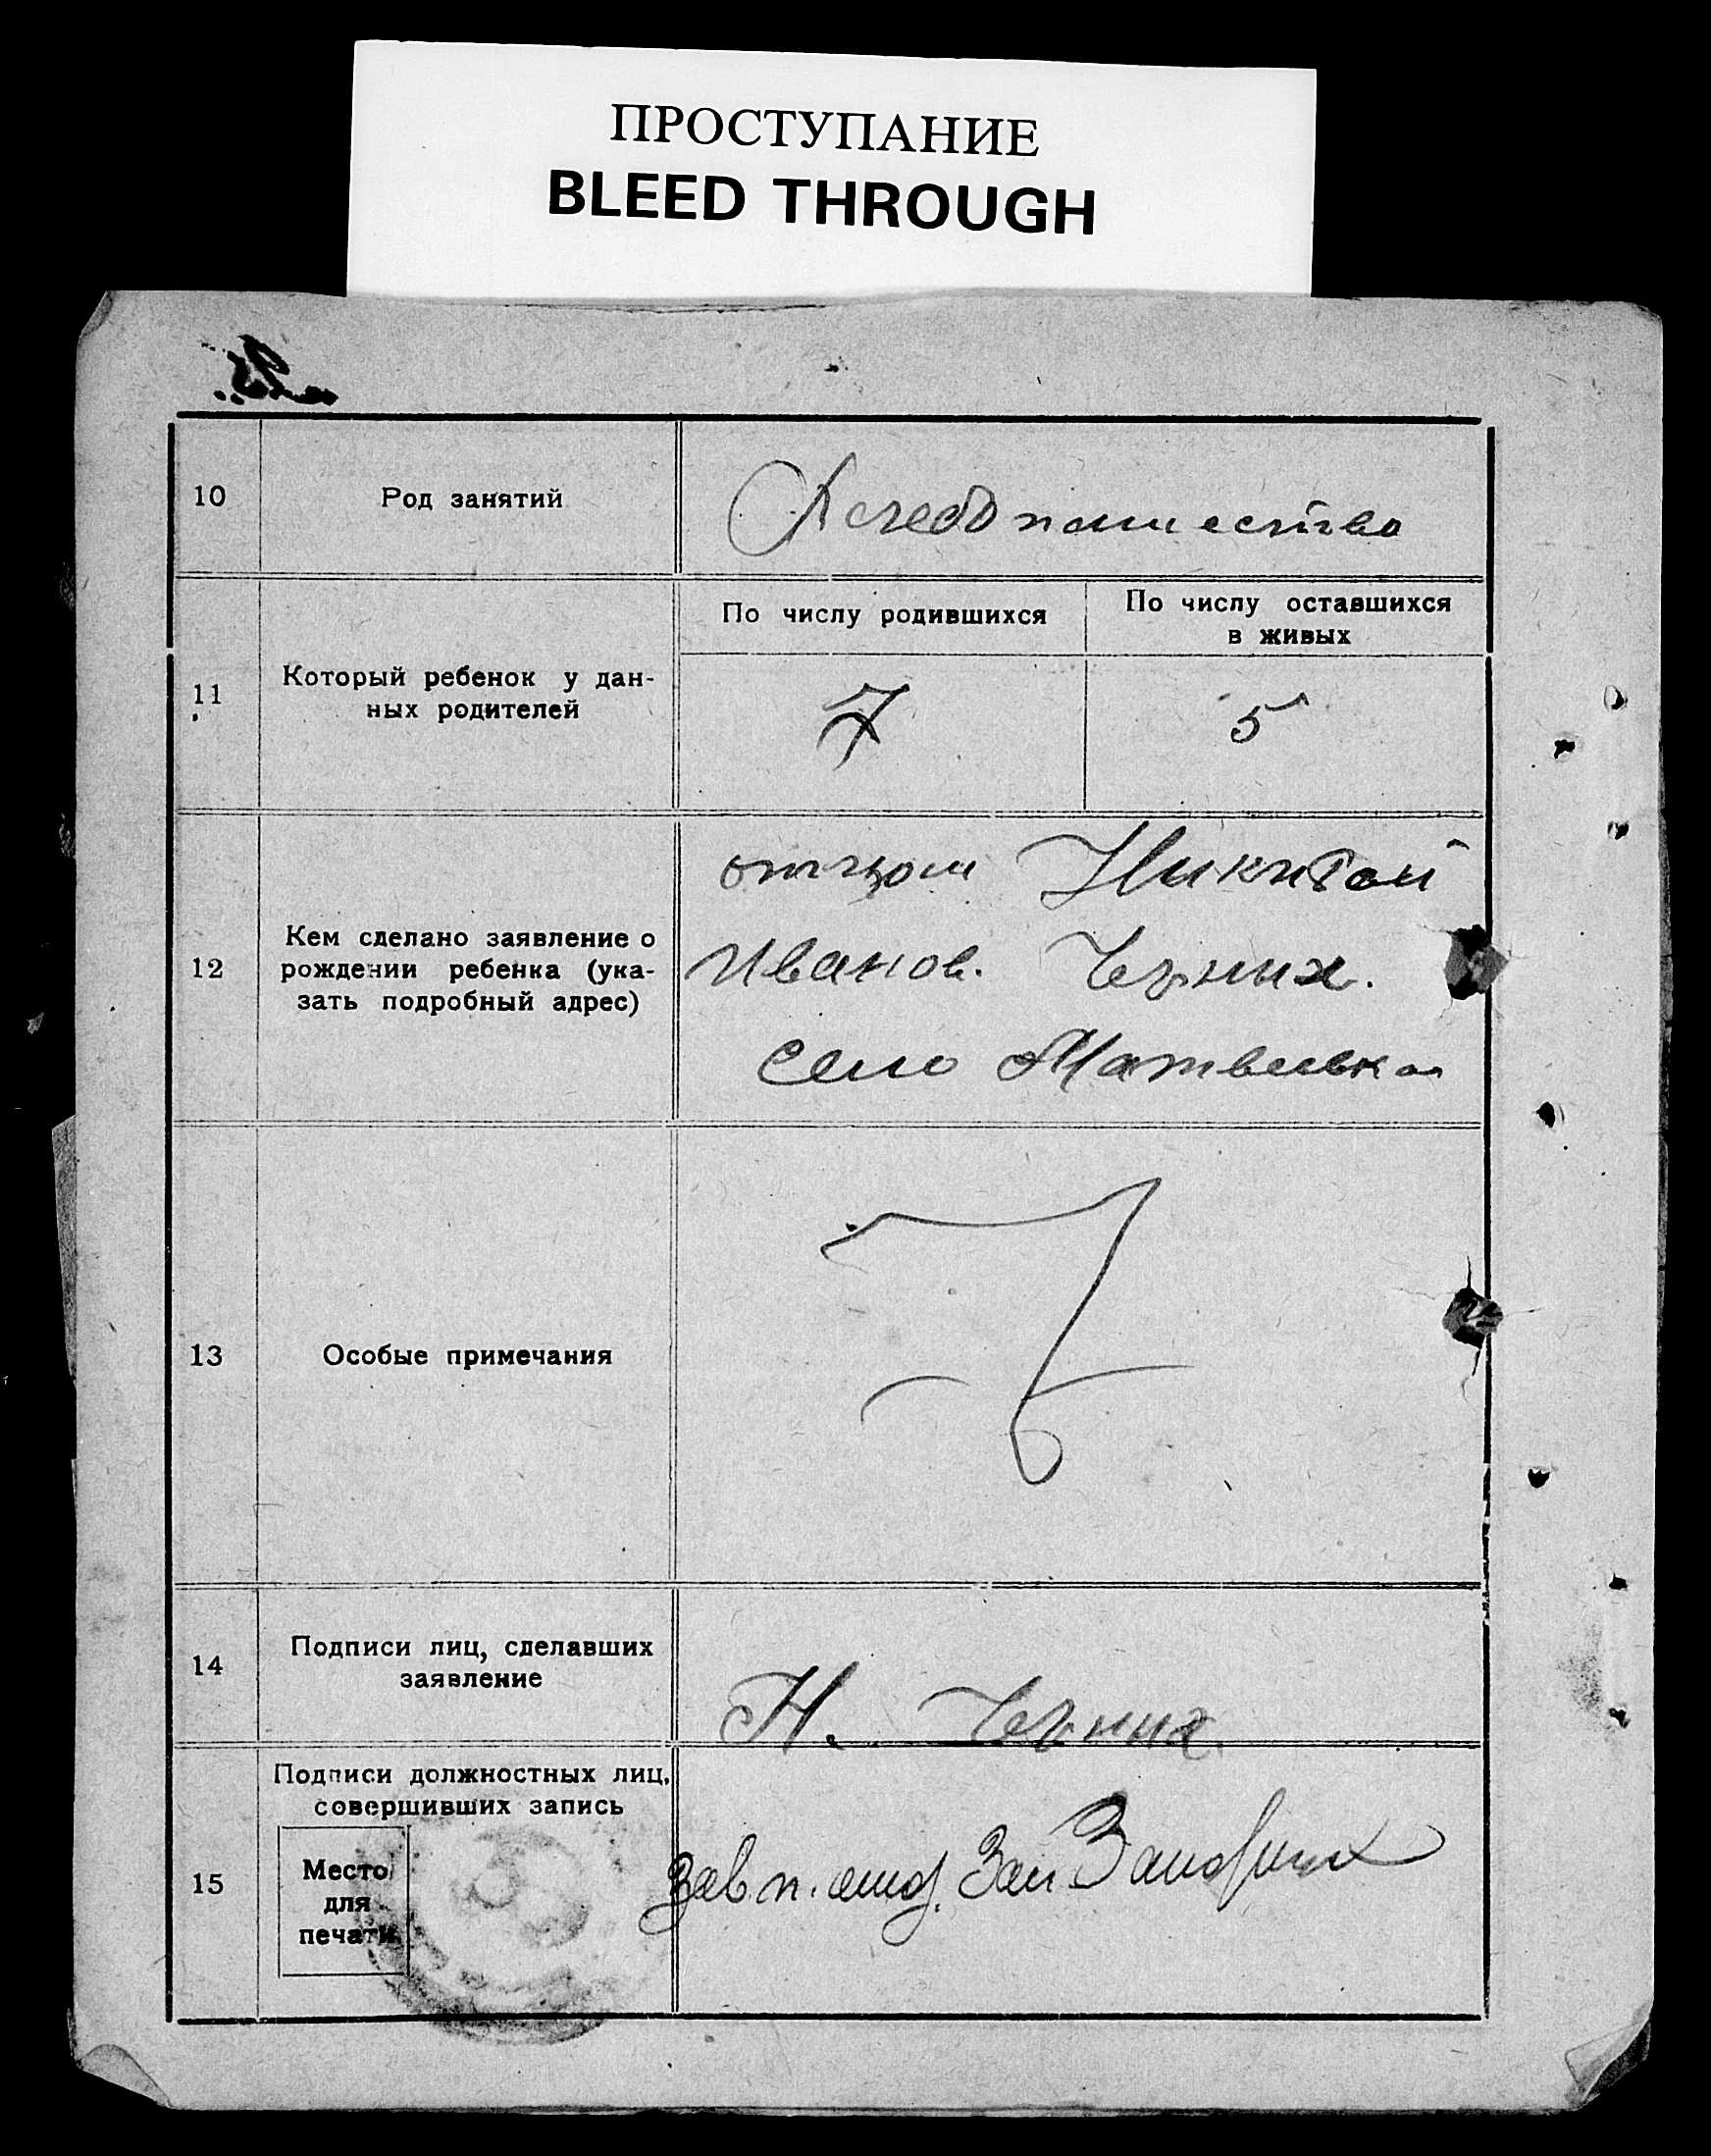 ПРОСТУПАНИЕ
BLEED THROUGH
10
Род занятий
Хлебопашество
11
Который ребенок у дан-
ных родителей
По числу родившихся
По числу оставшихся
в живых
7
5
12
Кем сделано заявление о
рождении ребенка (ука-
зать подробный адрес)
отцом Никитой
Иванов. Черных.
село Матвеевка
13
Особые примечания
14
Подписи лиц, сделавших
заявление
Н. Черных
Подписи должностных лиц,
совершивших запись
15
Место
для
печати
Зав п.